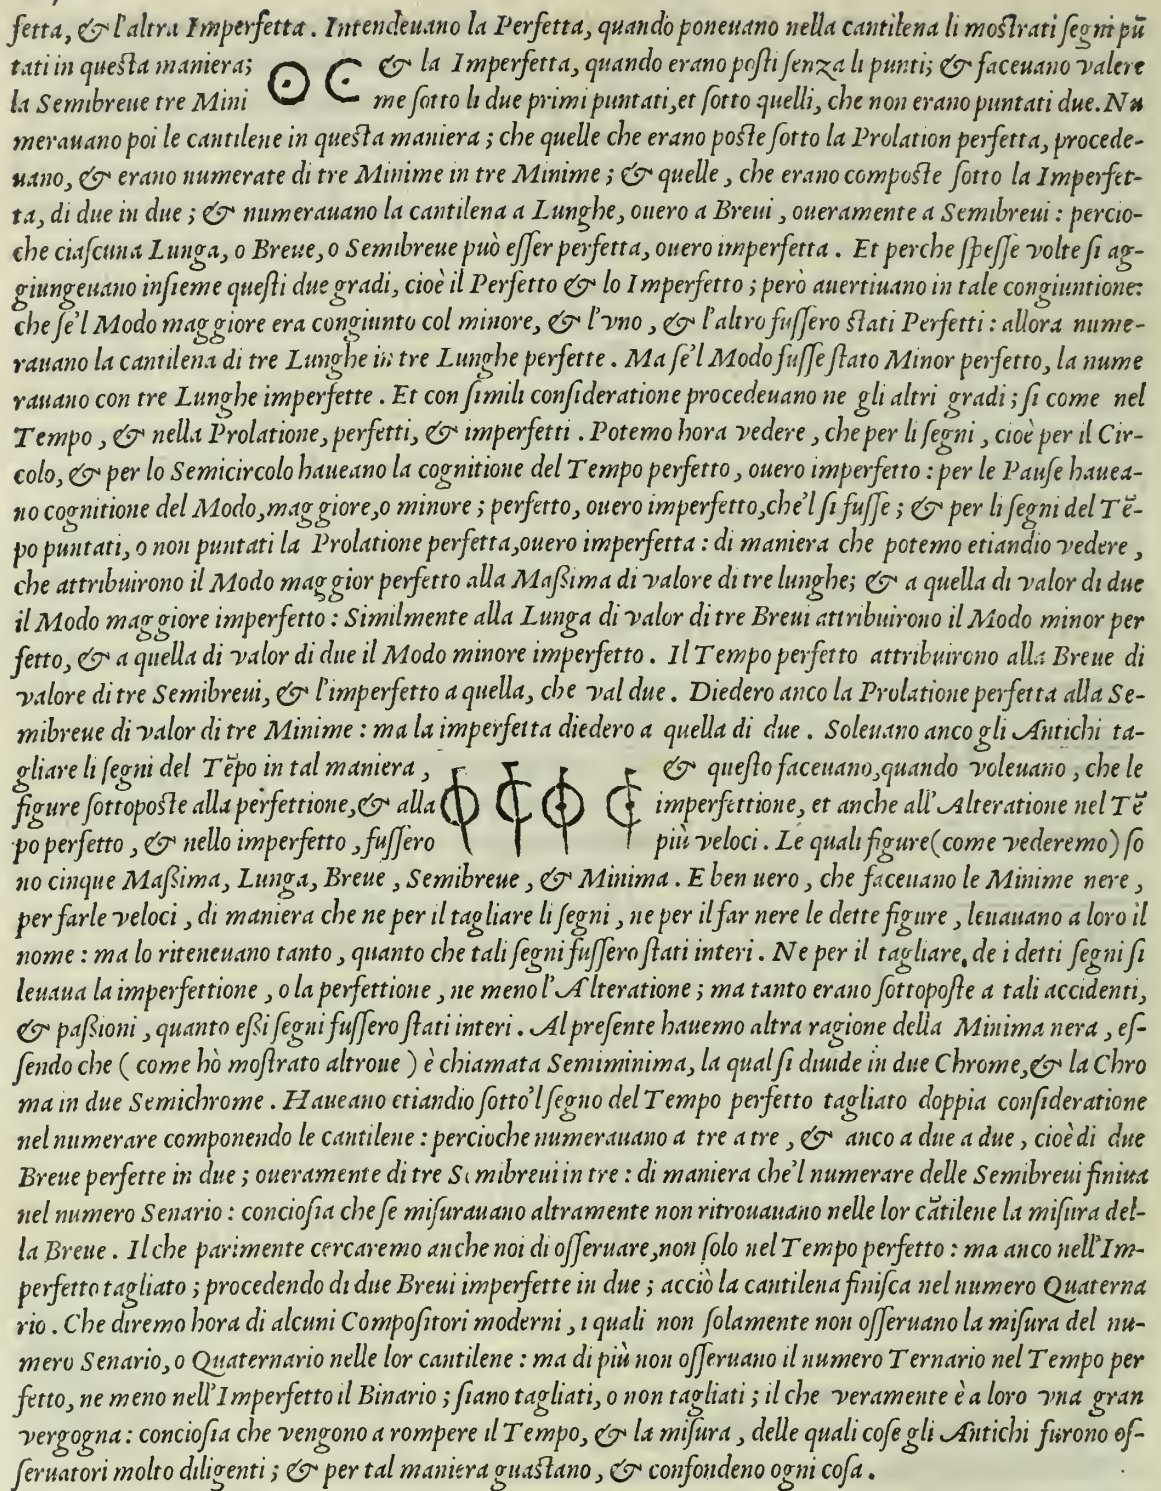 fetta, & l'altra Imperfetta. Intendeuano la Perfetta, quando poneuano nella cantilena li moſtrati ſegni pū
tati in queſta maniera; & la Imperfetta, quando erano poſti ſenza li punti; & faceuano valere
la Semibreue tre Mini me ſotto li due primi puntati, et ſotto quelli, che non erano puntati due. Nu
merauano poi le cantilene in queſta maniera; che quelle che erano poſte ſotto la Prolation perfetta, procede-
uano, & erano numerate di tre Minime in tre Minime; & quelle, che erano compoſte ſotto la Imperfet-
ta, di due in due; & numerauano la cantilena a Lunghe, ouero a Breui, oueramente a Semibreui: percio-
che ciaſcuna Lunga, o Breue, o Semibreue può eſſer perfetta, ouero imperfetta. Et perche ſpeſſe volte ſi ag-
giungeuano inſieme queſti due gradi, cioè il Perfetto & lo Imperfetto; però auertiuano in tale congiuntione:
che ſe'l Modo maggiore era congiunto col minore, & l'vno, & l'altro fuſſero ſtati Perfetti: allora nume-
rauano la cantilena di tre Lunghe in tre Lunghe perfette. Ma ſe'l Modo fuſſe ſtato Minor perfetto, la nume
rauano con tre Lunghe imperfette. Et con ſimili conſideratione procedeuano ne gli altri gradi; ſi come nel
Tempo, & nella Prolatione, perfetti, & imperfetti. Potemo hora vedere, che per li ſegni, cioè per il Cir-
colo, & per lo Semicircolo haueano la cognitione del Tempo perfetto, ouero imperfetto: per le Pauſe hauea-
no cognitione del Modo, maggiore, o minore; perfetto, ouero imperfetto, che'l ſi fuſſe; & per li ſegni del Tē-
po puntati, o non puntati la Prolatione perfetta, ouero imperfetta: di maniera che potemo etiandio vedere,
che attribuirono il Modo maggior perfetto alla Maſsima di valore di tre lunghe; & a quella di valor di due
il Modo maggiore imperfetto: Similmente alla Lunga di valor di tre Breui attribuirono il Modo minor per
fetto, & a quella di valor di due il Modo minore imperfetto. Il Tempo perfetto attribuirono alla Breue di
valore di tre Semibreui, & l'imperfetto a quella, che val due. Diedero anco la Prolatione perfetta alla Se-
mibreue di valor di tre Minime: ma la imperfetta diedero a quella di due. Soleuano anco gli Antichi ta-
gliare li ſegni del Tēpo in tal maniera, & queſto faceuano, quando voleuano, che le
figure ſottopoſte alla perfettione, & alla imperfettione, et anche all'Alteratione nel Tē
po perfetto, & nello imperfetto, fuſſero più veloci. Le quali figure (come vederemo) ſo
no cinque Maſsima, Lunga, Breue, Semibreue, & Minima. E ben uero, che faceuano le Minime nere,
per farle veloci, di maniera che ne per il tagliare li ſegni, ne per il far nere le dette figure, leuauano a loro il
nome: ma lo riteneuano tanto, quanto che tali ſegni fuſſero ſtati interi. Ne per il tagliare, de i detti ſegni ſi
leuaua la imperfettione, o la perfettione, ne meno l'Alteratione; ma tanto erano ſottopoſte a tali accidenti,
& paſsioni, quanto eſsi ſegni fuſſero ſtati interi. Al preſente hauemo altra ragione della Minima nera, eſ-
ſendo che (come hò moſtrato altroue) è chiamata Semiminima, la qual ſi diuide in due Chrome, & la Chro
ma in due Semichrome. Haueano etiandio ſotto'l ſegno del Tempo perfetto tagliato doppia conſideratione
nel numerare componendo le cantilene: percioche numerauano a tre a tre, & anco a due a due, cioè di due
Breue perfette in due; oueramente di tre Semibreui in tre: di maniera che'l numerare delle Semibreui finiua
nel numero Senario: concioſia che ſe miſurauano altramente non ritrouauano nelle lor cātilene la miſura del-
la Breue. Il che parimente cercaremo anche noi di oſſeruare, non ſolo nel Tempo perfetto: ma anco nell'Im-
perfetto tagliato; procedendo di due Breui imperfette in due; acciò la cantilena finiſca nel numero Quaterna
rio. Che diremo hora di alcuni Compoſitori moderni, i quali non ſolamente non oſſeruano la miſura del nu-
mero Senario, o Quaternario nelle lor cantilene: ma di più non oſſeruano il numero Ternario nel Tempo per
fetto, ne meno nell'Imperfetto il Binario; ſiano tagliati, o non tagliati; il che veramente è a loro vna gran
vergogna: concioſia che vengono a rompere il Tempo, & la miſura, delle quali coſe gli Antichi furono oſ-
ſeruatori molto diligenti; & per tal maniera guaſtano, & confondeno ogni coſa.